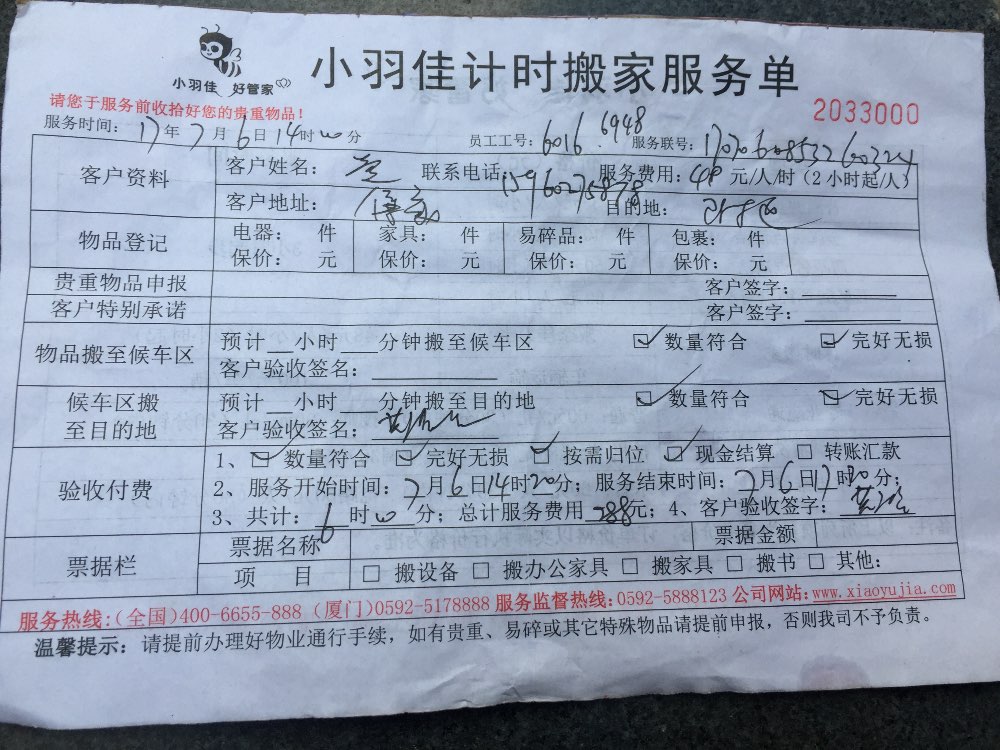 小羽佳 好管家
小羽佳计时搬家服务单
请您于服务前收拾好您的贵重物品!
2033000
服务时间: 17年7月6日14时00分 员工工号: 6016 6948 服务联号: 17070608532600324
客户资料 客户姓名: 联系电话: 15960275878 服务费用: 48 元/人/时 (2小时起/人)
客户地址: 目的地:
物品登记 电器: 件 家具: 件 易碎品: 件 包裹: 件
保价: 元 保价: 元 保价: 元 保价: 元
贵重物品申报 客户签字:
客户特别承诺 客户签字:
物品搬至候车区 预计__小时___分钟搬至候车区 数量符合 完好无损
客户验收签名:
候车区搬至目的地 预计__小时___分钟搬至目的地 数量符合 完好无损
客户验收签名:
验收付费 1、 数量符合 完好无损 按需归位 现金结算 转账汇款
2、服务开始时间: 7月6日14时20分; 服务结束时间: 7月6日17时20分;
3、共计: 6时00分; 总计服务费用 288元; 4、客户验收签字:
票据栏 票据名称 票据金额
项 目 搬设备 搬办公家具 搬家具 搬书 其他:
服务热线:(全国)400-6655-888 (厦门)0592-5178888 服务监督热线:0592-5888123 公司网站:www.xiaoyujia.com
温馨提示: 请提前办理好物业通行手续,如有贵重、易碎或其它特殊物品请提前申报,否则我司不予负责。